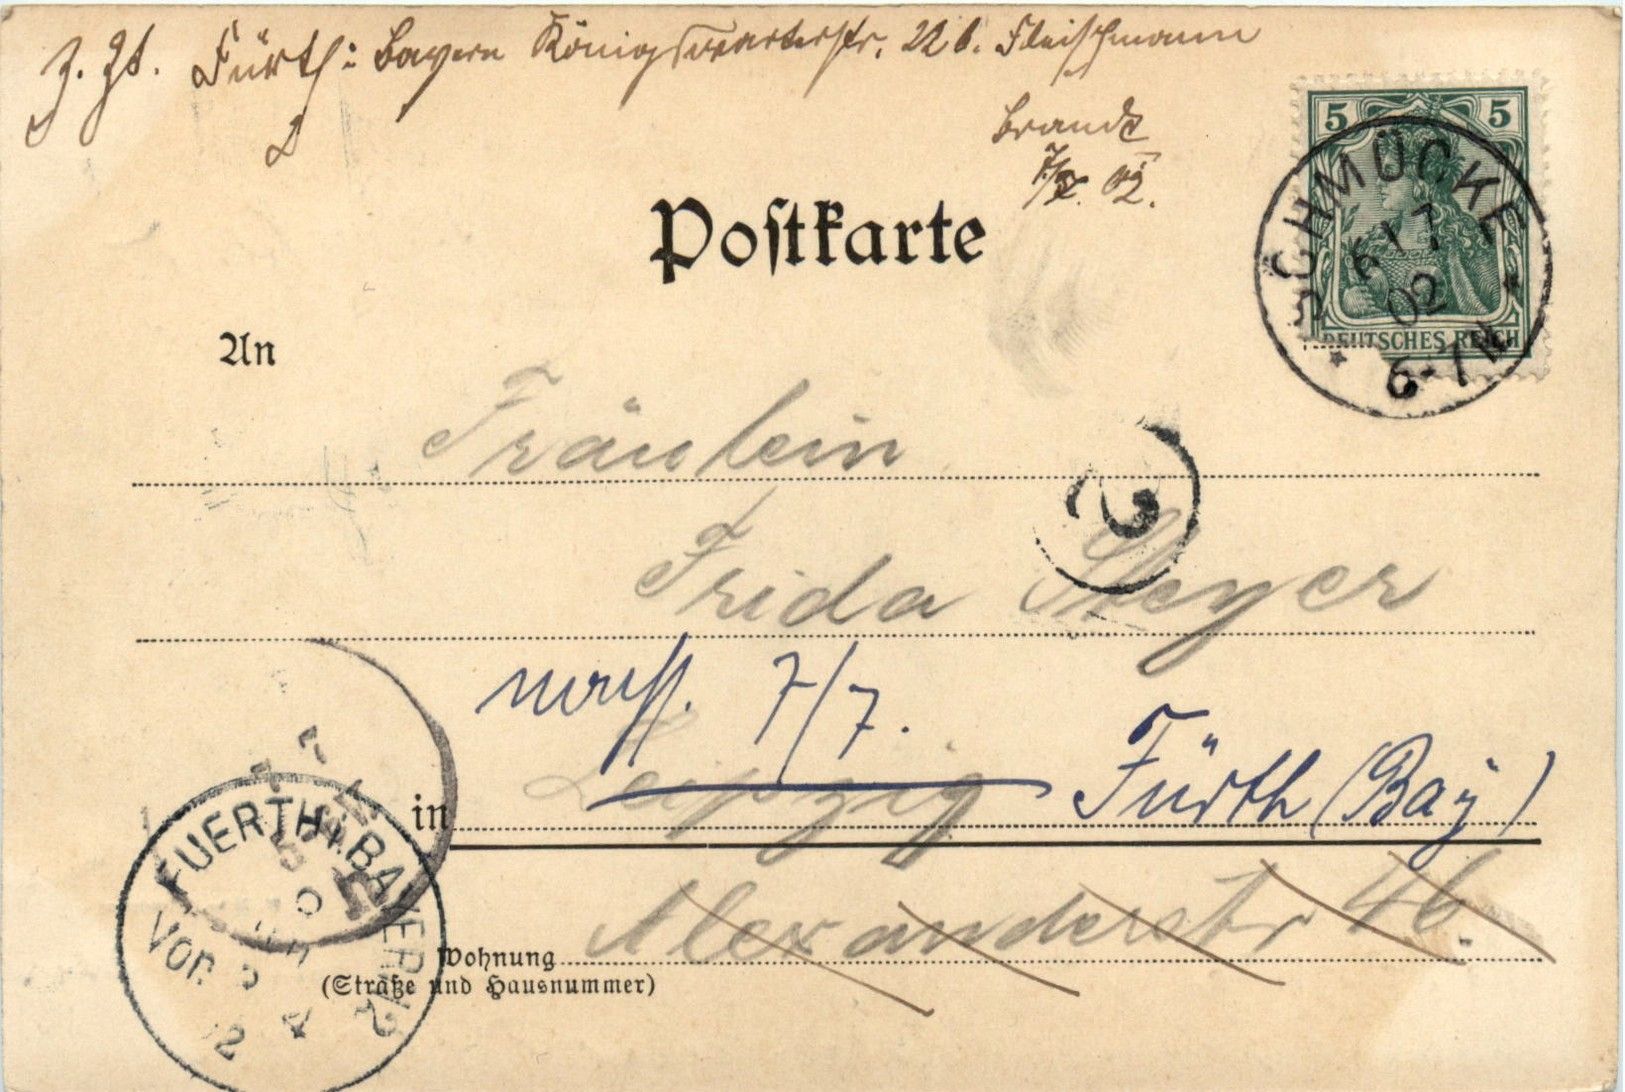 z. Zt. Fürth i. Bayern Königswarterstr. 22 b. Fleischmann
Brandt
7/7. 02.
Postkarte
5 5
DEUTSCHES REICH
SCHMÜCKE
6 / 7
02
6-7 N
An
Fräulein
2
Frida Steyer
7/7.
Leipzig Fürth (Bay)
in
Alexanderstr 46.
Wohnung
(Straße und Hausnummer)
FUERTH I. BAYERN 2
VOR.